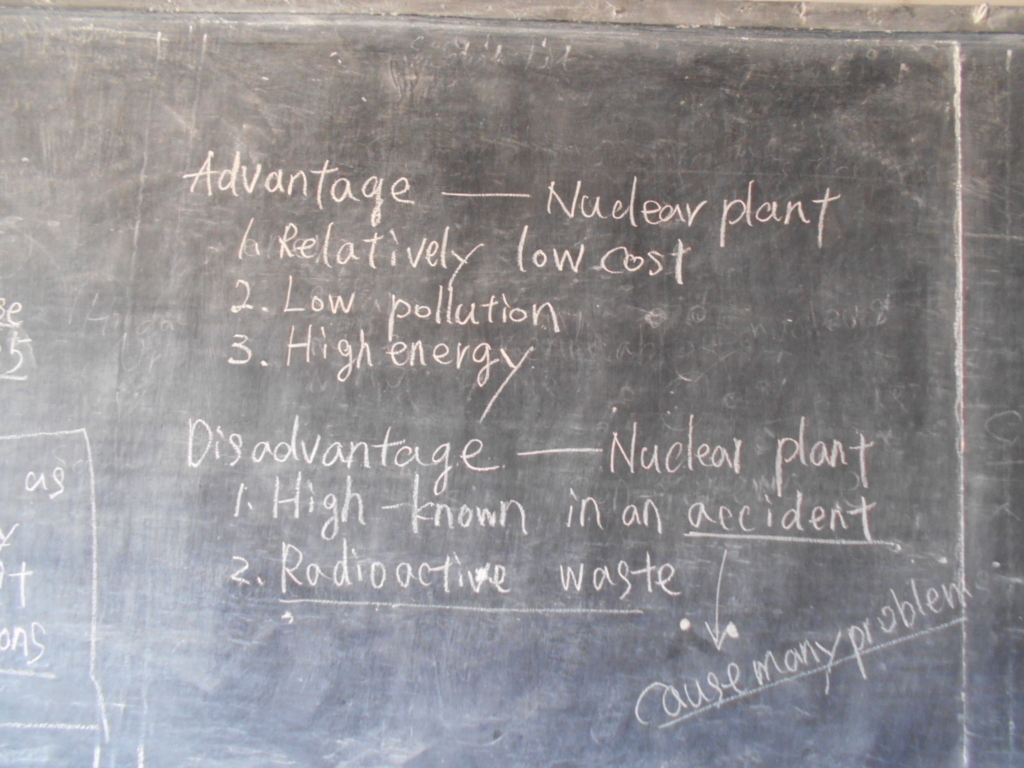 Advantage — Nuclear plant
1. Relatively low cost
2. Low pollution
3. High energy
Disadvantage — Nuclear plant
1. High-known in an accident
2. Radioactive waste
cause many problem
as
ons